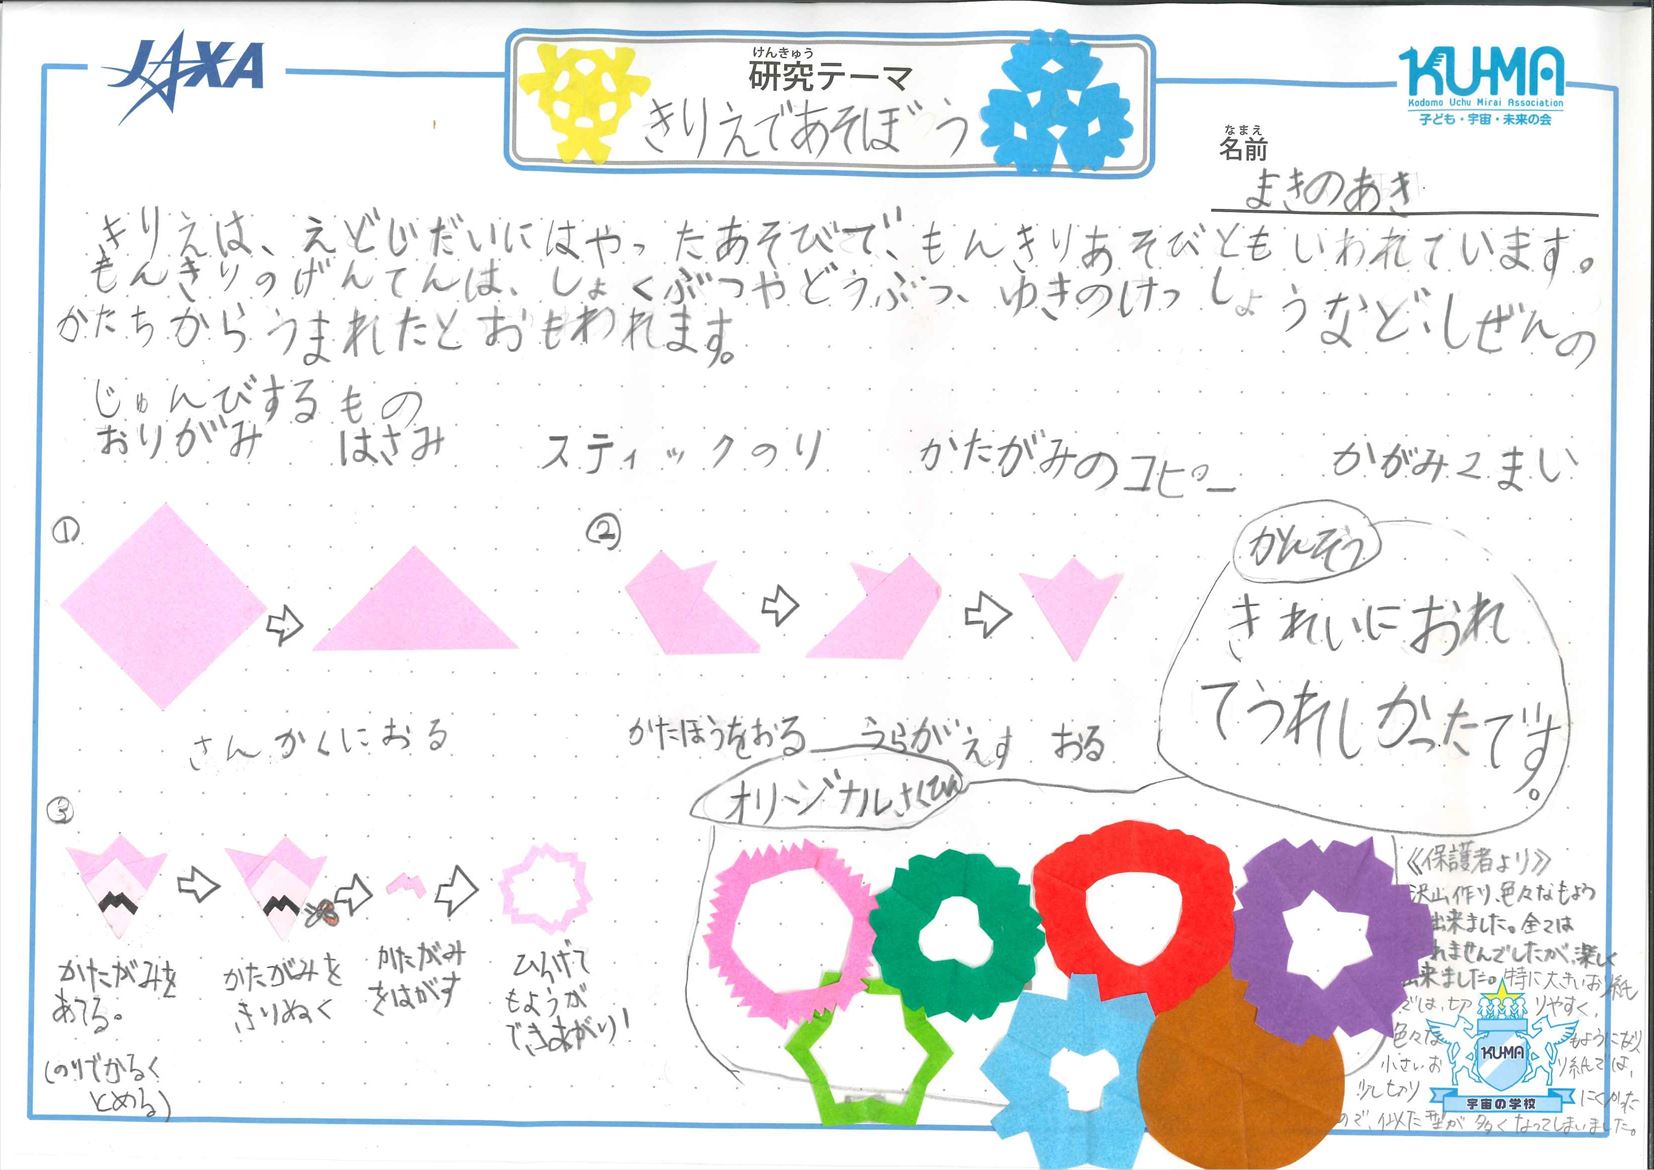 JAXA
けんきゅう
研究テーマ
きりえであそぼう
KU-MA
Kodomo Uchu Mirai Association
子ども・宇宙・未来の会
なまえ
名前
まきのあき
きりえは、えどじだいにはやったあそびで、もんきりあそびともいわれています。
もんきりのげんてんは、しょくぶつやどうぶつ、ゆきのけっしょうなど、しぜんの
かたちからうまれたとおもわれます。
じゅんびするもの
おりがみ はさみ スティックのり かたがみのコピー かがみ2まい
①
さんかくにおる
②
かたほうをおる うらがえす おる
かんそう
きれいにおれ
てうれしかったです。
③
かたがみを
あてる。
(のりでかるく
とめる)
かたがみを
きりぬく
かたがみ
をはがす
ひらげて
もようが
できあがり!
オリージナルさくひん
《保護者より》
沢山作り、色々なもよう
出来ました。全ては
れませんでしたが、楽しく
出来ました。特に大きいおり紙
では、切りやすく、
色々な もようになり
小さいおり紙では、
少し切りにくかった
ので、似た型が多くなってしまいました。
KU-MA
宇宙の学校